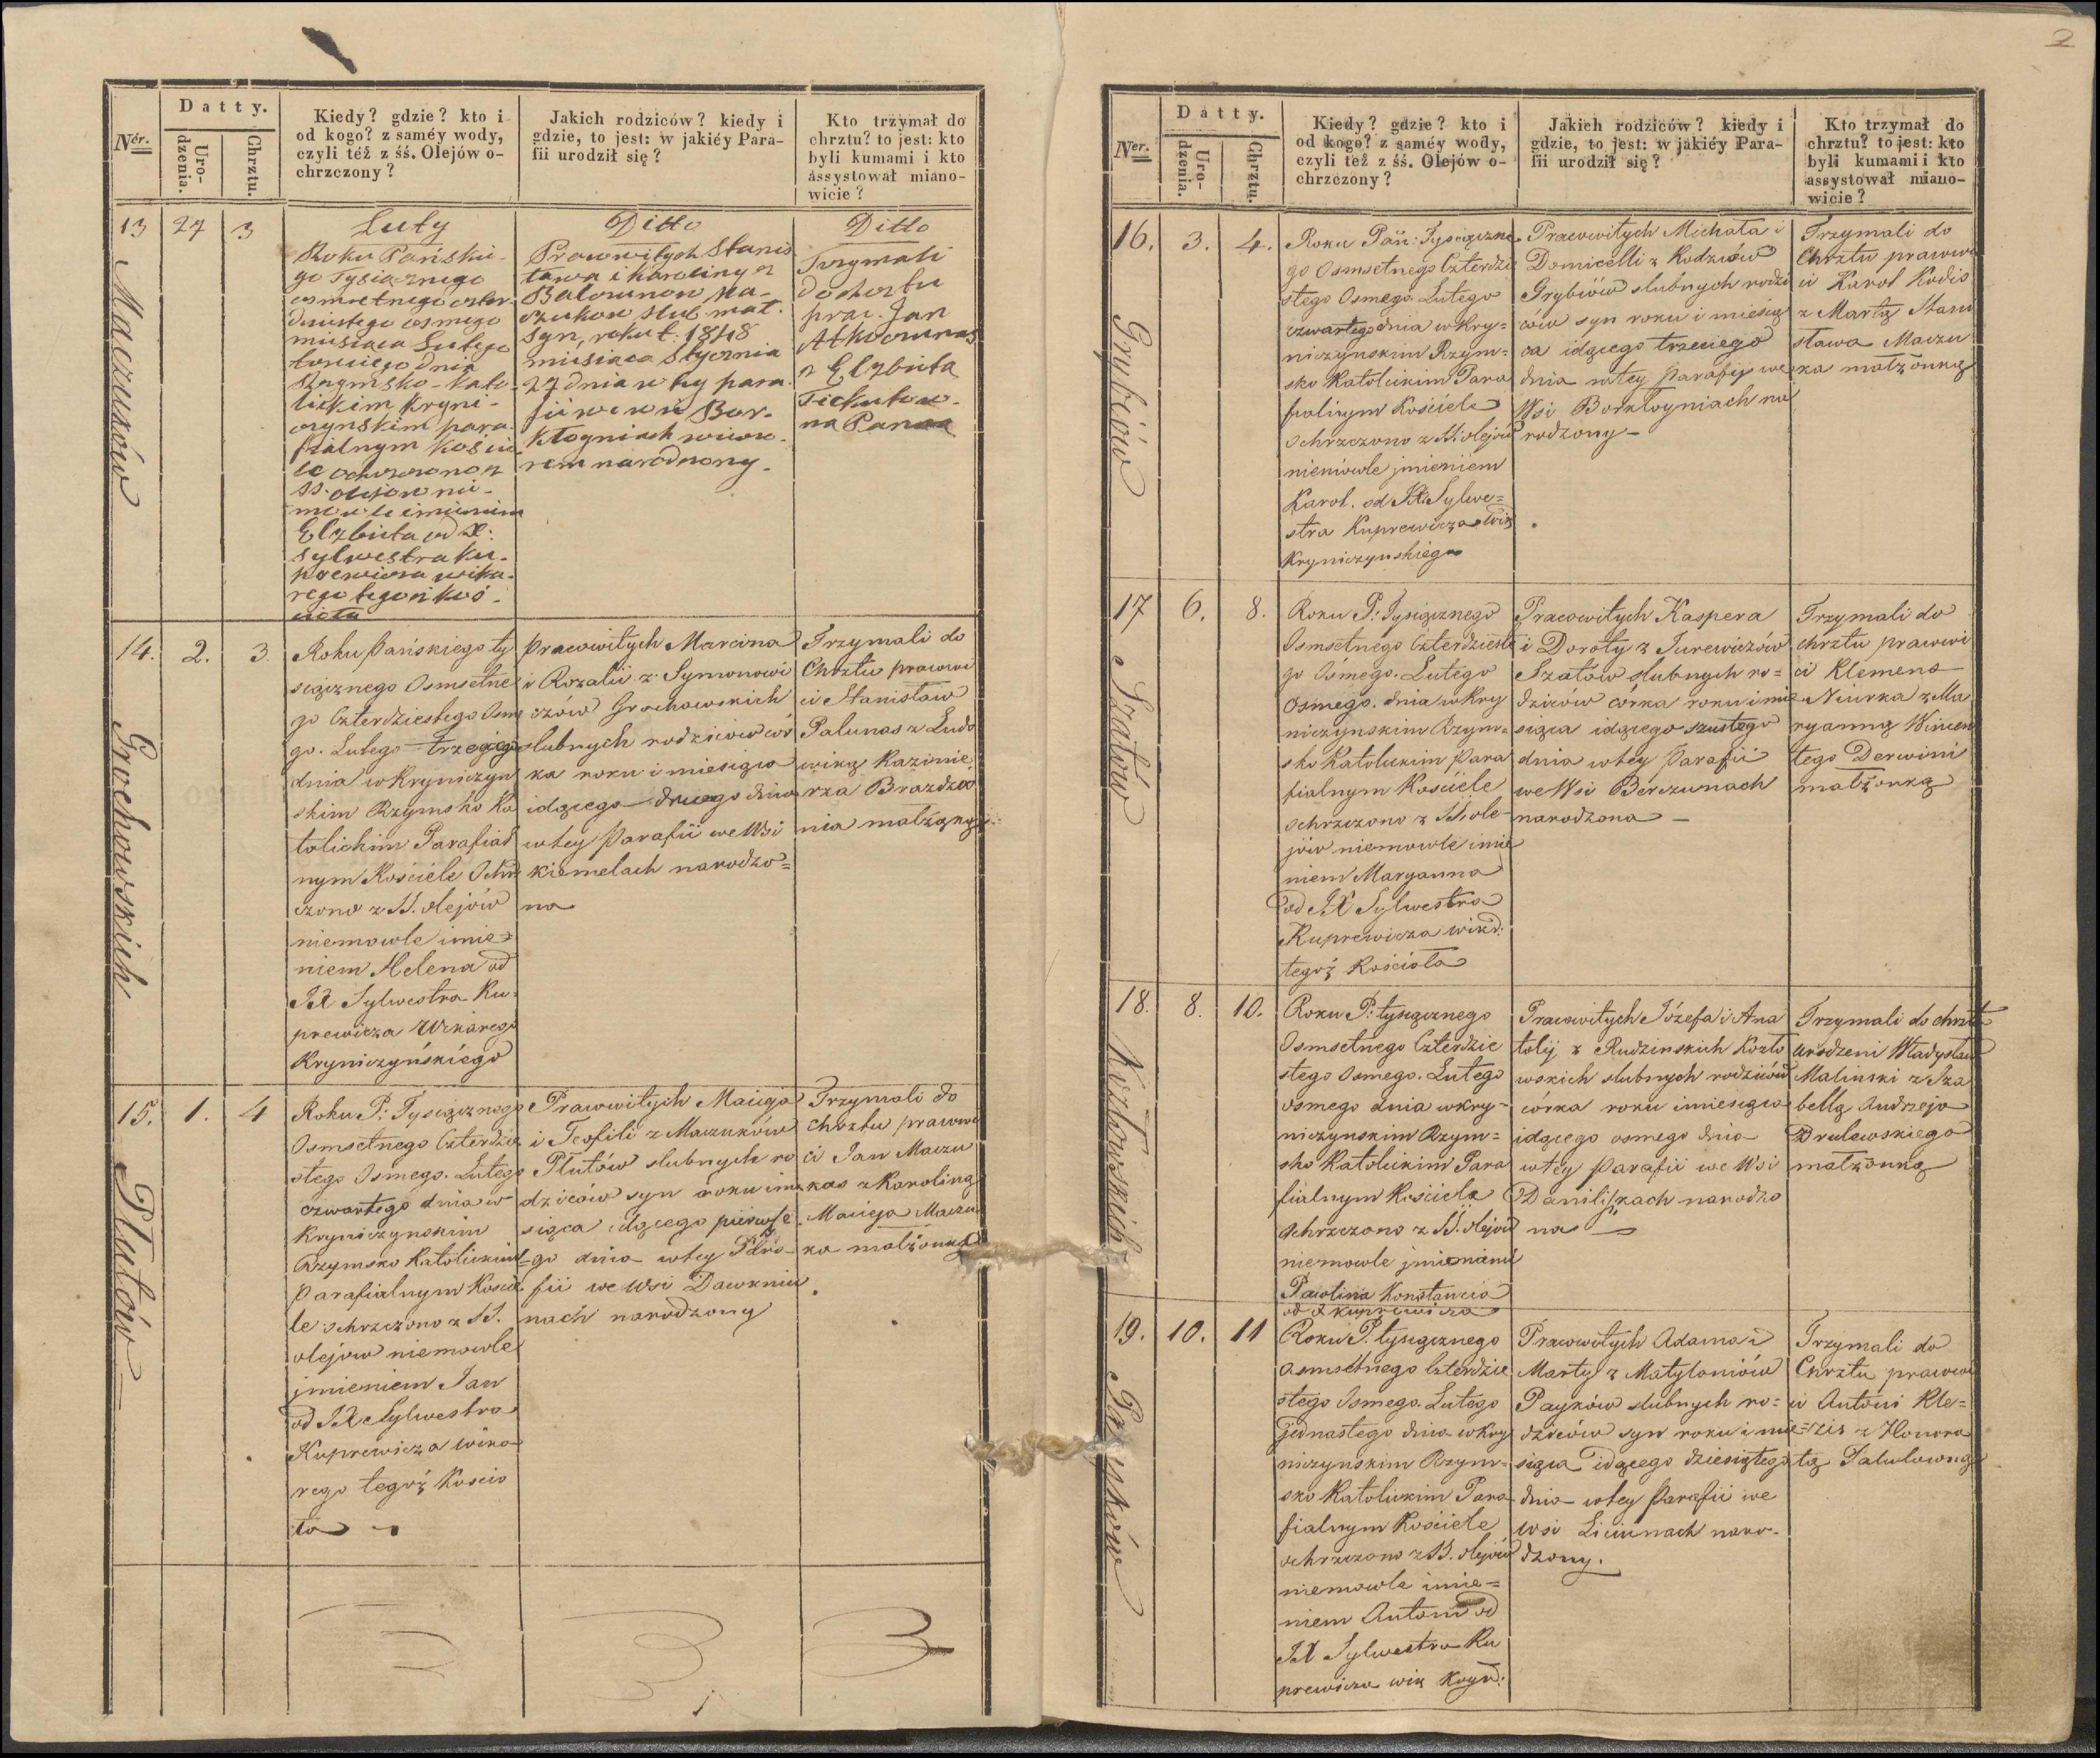 2
Nér.
Datty.
Uro-
dzenia.
Chrztu.
Kiedy? gdzie? kto i
od kogo? z saméy wody,
czyli téż z śś. Olejów o-
chrzczony?
Jakich rodziców? kiedy i
gdzie, to jest: w jakiéy Para-
fii urodził się?
Kto trzymał do
chrztu? to jest: kto
byli kumami i kto
assystował miano-
wicie?
13
27
3
Maczuków
Luty
Roku Pańskie-
go Tysiącznego
osmsetnego czter-
dziestego osmego
miesiąca Lutego
trzeciego dnia
Rzymsko-kato-
lickim Kryni-
czynskim para-
fialnym koście
le ochrzczono z
SS. olejow nie-
mowle imieniem
Elzbieta od X:
Sylwestra Ku-
prewicza wika-
rego tegoż koś-
cioła
Ditto
Prawowitych Stanis
ława i Karoliny z
Balcunow Ma-
czukow slub. mał.
syn, roku t. 1848
miesiaca Stycznia
27 dnia w tey para
fii we wsi Bor-
kłoyniach wieczo-
rem narodzony.
Ditto
Trzymali
do chrztu
praw. Jan
z Elzbieta
na Panna
14.
2.
3.
Grochowskich
Roku Pańskiego ty
siącznego Osmsetne
go Czterdziestego Osme
go. Lutego trzeciego
dnia w Kryniczyn
skim Rzymsko Ka
tolickim Parafial
nym Kościele Ochrz
czono z SS. olejów
niemowle imie-
niem Helena od
JX Sylwestra Ku-
prewicza Wikarego
Kryniczyńskiego
Prawowitych Marcina
i Rozalii z Symonowi
czów Grochowskich
slubnych rodziców cór
ka roku i miesiąca
idącego drugiego dnia
w tey Parafii we Wsi
Kiemelach narodzo=
na
Trzymali do
Chrztu prawowi
ci Stanisław
Palunas z Ludo
wiką Kazimie-
rza Brazdzio
nia małżonką
15.
1.
4
Plutów
Roku P: Tysiącznego
Osmsetnego Czterdzie
stego Osmego. Lutego
czwartego dnia w
Kryniczynskim
Rzymsko Katolickim
Parafialnym Koscie
le ochrzczono z SS.
olejow niemowle
jmieniem Jan
od JX Sylwestra
Kuprewicza wika-
rego tegoż Kościo
ła
Prawowitych Macieja
i Teofili z Maczuków
Plutów slubnych ro
dziców syn roku i mie
siąca idącego pierwsze
go dnia w tey Para-
fii we Wsi Dawkniu
nach narodzony
Trzymali do
chrztu prawowi
ci Jan Maczu
kas z Karoliną
Macieja Maczu
ka małżonką
Ner.
Datty.
Uro-
dzenia.
Chrztu.
Kiedy? gdzie? kto i
od kogo? z saméy wody,
czyli też z śś. Olejów o-
chrzczony?
Jakich rodziców? kiedy i
gdzie, to jest: w jakiéy Para-
fii urodził się?
Kto trzymał do
chrztu? to jest: kto
byli kumami i kto
assystował miano-
wicie?
16.
3.
4.
Grybiów
Roku Pań: Tysiączne
go Osmsetnego Czterdzie
stego Osmego. Lutego
czwartego dnia w Kry=
niczynskim Rzym=
sko Katolickim Para
fialnym Kościele
Ochrzczono z SS. olejów
niemowle jmieniem
Karol. od JX. Sylwe=
stra Kuprewicza Wik
Kryniczynskiego
Prawowitych Michała i
Domicelli z Kodziów
Grybiów slubnych rodzi
ców syn roku i miesią
ca idącego trzeciego
dnia w tey Parafii we
Wsi Borkłoyniach na
rodzony—
Trzymali do
Chrztu prawowi
ci Karol Kodis
z Martą Stani
sława Maczu
ka małżonką
17
6.
8.
Szatów
Roku P: Tysiącznego
Osmsetnego Czterdzieste
go Osmego. Lutego
Osmego. dnia w Kry
niczynskim Rzym=
sko Katolickim Para
fialnym Kościele
Ochrzczono z SS. ole-
jów niemowle imie
niem Maryanna
od JX Sylwestra
Kuprewicza wikar:
tegoż Kościoła
Prawowitych Kaspera
i Doroty z Jurewiczów
Szatów slubnych ro=
dziców córka roku i mie
siąca idącego szustego
dnia w tey Parafii
we Wsi Bérczunach
narodzona —
Trzymali do
chrztu prawowi
ci Klemens
Niurka z Ma
ryanną Wincen
tego Derwini
małżonką
18.
8.
10.
Kozłowskich
Roku P: tysiącznego
Osmsetnego Czterdzie
stego Osmego. Lutego
osmego dnia w Kry-
niczynskim Rzym=
sko Katolickim Para
fialnym Kościele
Ochrzczono z SS. olejów
niemowle jmieniem
Paulina Konstancia
od X Kuprewicza
Prawowitych Józefa i Ana
tolij z Rudzinskich Kozło
wskich slubnych rodziców
córka roku i miesiąca
idącego osmego dnia
w tey Parafii we Wsi
Daniliszkach narodzo
na —
Trzymali do chrztu
urodzeni Władysław
Malinski z Iza
bellą Andrzeja
Drulewskiego
małżonką
19.
10.
11
Roku P. tysiącznego
osmsetnego Czterdzie
stego Osmego. Lutego
jednastego dnia w Kry
niczynskim Rzym=
sko Katolickim Para
fialnym Kościele
ochrzczono z SS. olejów
niemowle imie=
niem Antoni od
JX Sylwestra Ku
prewicza wik Kryn:
Prawowitych Adama i
Marty z Matylaniów
slubnych ro=
dziców syn roku i mie=
siąca idącego dziesiątego
dnia w tey Parafii we
Wsi Liciunach naro-
dzony.
Trzymali do
Chrztu prawowi
ci Antoni Kle=
zis z Honora
tą